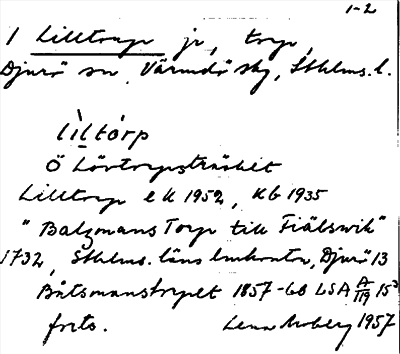 1-2
1 Lilltorp jr, torp,
Djurö sn, Värmdö skg, Sthlms. l.
lìltórp
Ö Lövtorpsträsket
Lilltorp ek 1952, KG 1935
"Balzmans Torp till Fiälswik"
1732, Sthlms. läns lmkontor, Djurö 13
Båtsmanstorpet 1857-60 LSA A/119 15³
forts. Lena Moberg 1957